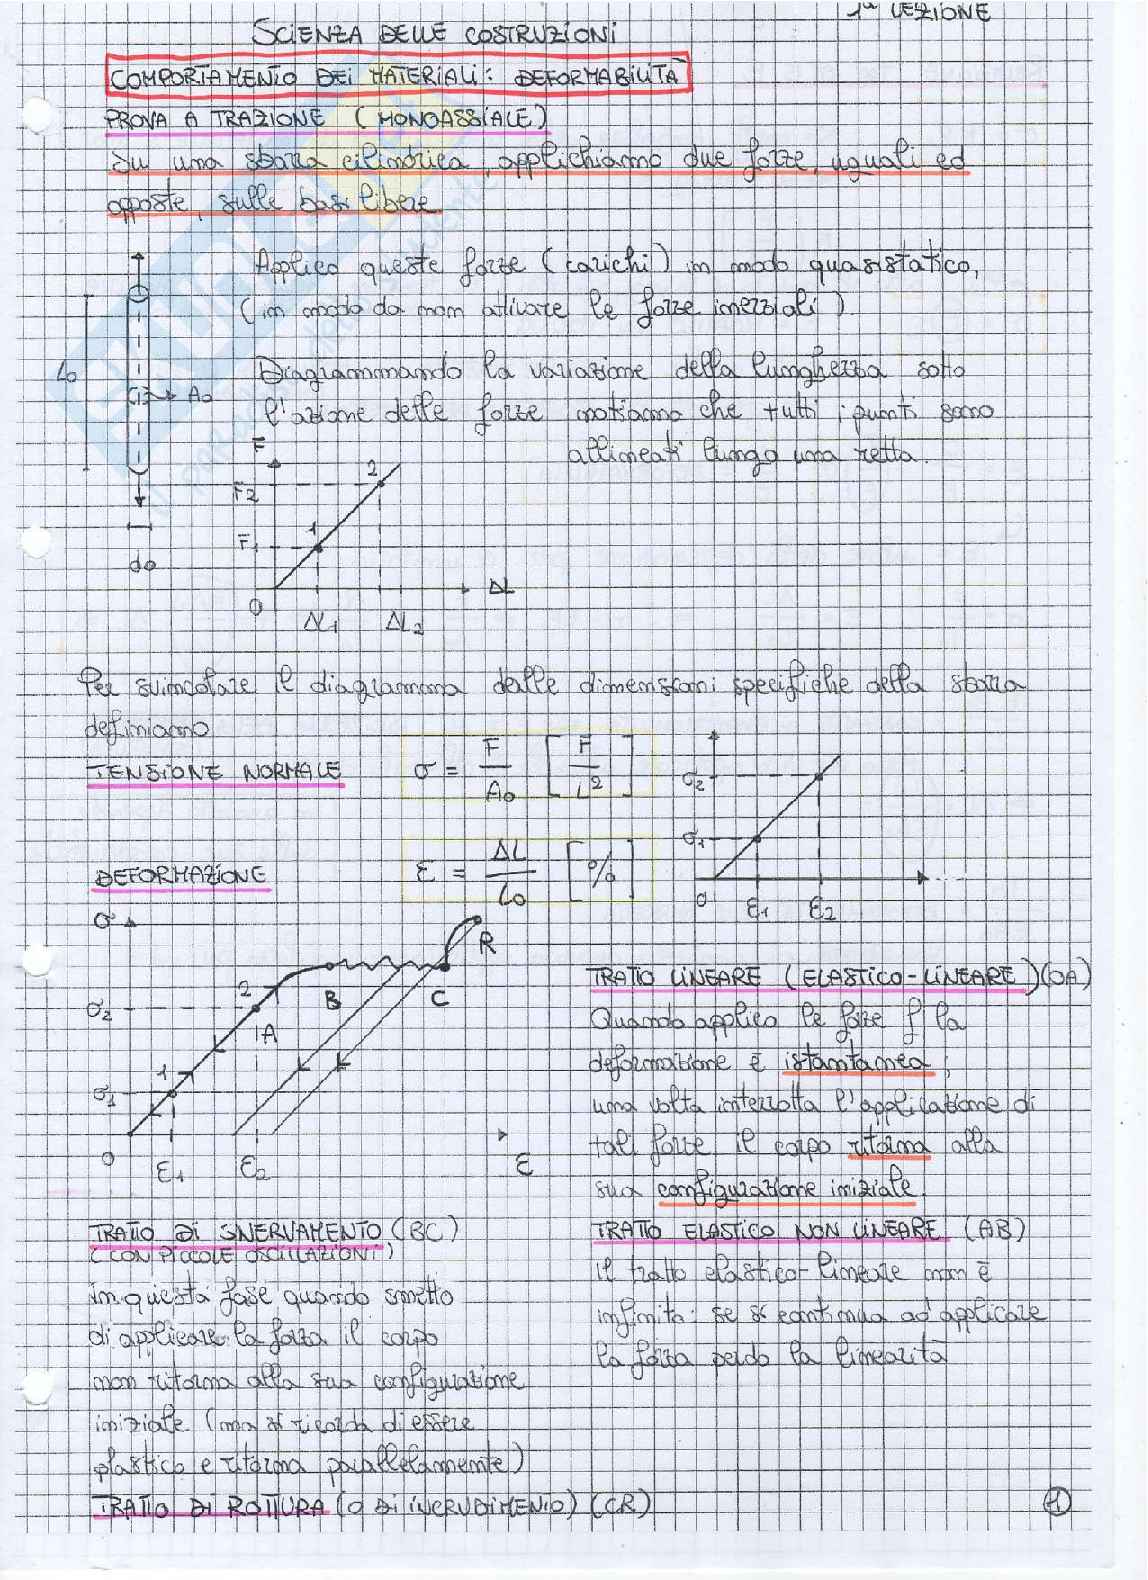 1ª LEZIONE
SCIENZA DELLE COSTRUZIONI
COMPORTAMENTO DEI MATERIALI: DEFORMABILITÀ
PROVA A TRAZIONE (MONOASSIALE)
Su una sbarra cilindrica, applichiamo due forze, uguali ed
opposte, sulle basi libere
Applico queste forze (carichi) in modo quasistatico,
(in modo da non attivare le forze inerziali).
L0
A0
d0
Diagrammando la variazione della lunghezza sotto
l'azione delle forze notiamo che tutti i punti sono
allineati lungo una retta.
F
F2
2
F1
1
0
ΔL
ΔL1
ΔL2
Per svincolare il diagramma dalle dimensioni specifiche della sbarra
definiamo
TENSIONE NORMALE
σ = F/A0 [F/L²]
σ2
σ1
0
ε1
ε2
DEFORMAZIONE
ε = ΔL/L0 [%]
σ
R
B
C
2
σ2
A
1
σ1
0
ε1
ε2
ε
TRATTO LINEARE (ELASTICO-LINEARE) (OA)
Quando applico le forze f la
deformazione è istantanea;
una volta interrotta l'applicazione di
tali forze il corpo ritorna alla
sua configurazione iniziale.
TRATTO DI SNERVAMENTO (BC)
(CON PICCOLE OSCILLAZIONI)
in questa fase quando smetto
di applicare la forza il corpo
non ritorna alla sua configurazione
iniziale (ma si ricorda di essere
plastico e ritorna parallelamente)
TRATTO ELASTICO NON LINEARE (AB)
il tratto elastico-lineare non è
infinito: se si continua ad applicare
la forza perdo la linearità
TRATTO DI ROTTURA (O DI INCRUDIMENTO) (CR)
1